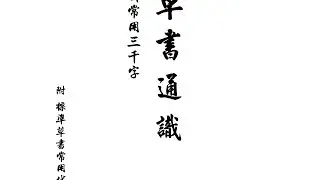 草書通識
常用三千字
附 標準草書常用